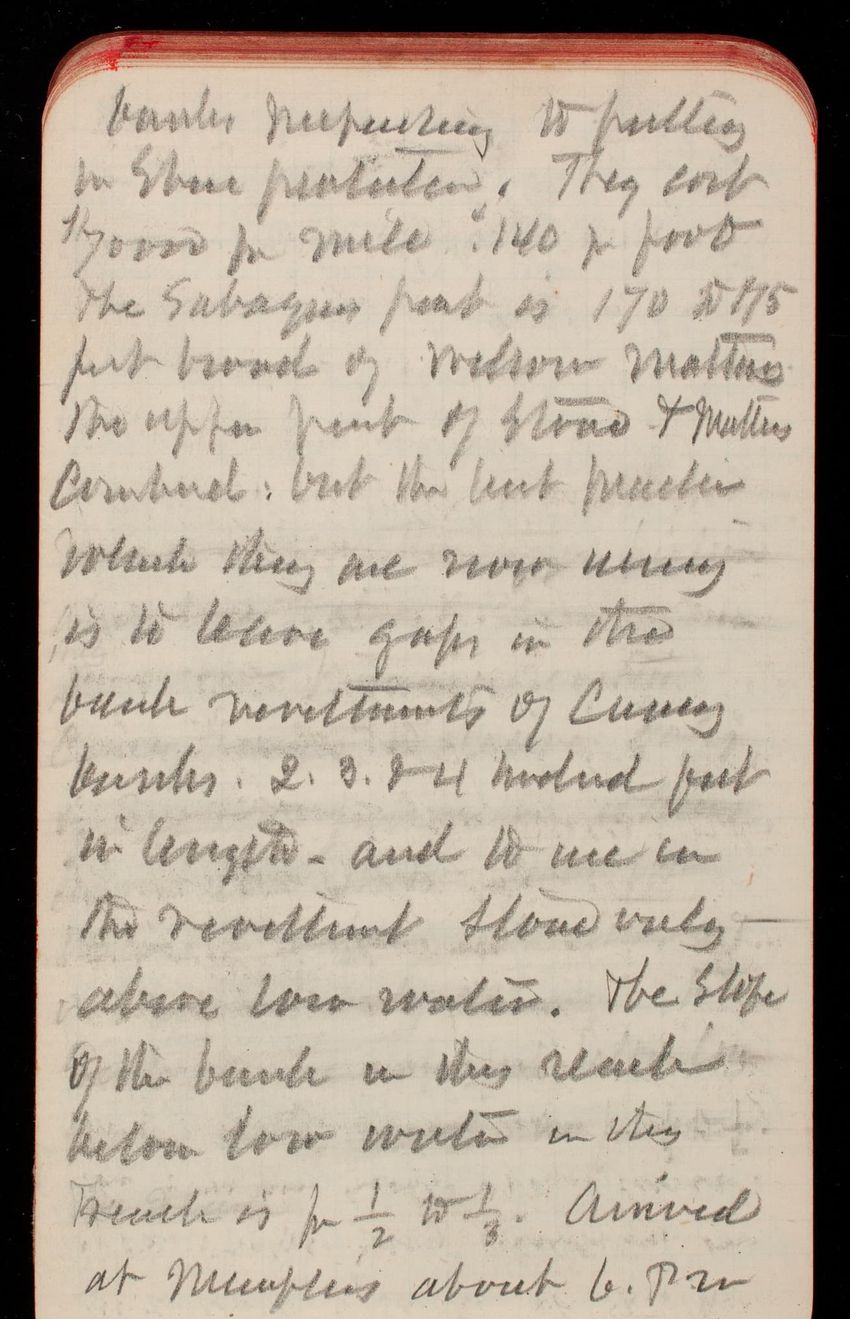 banks preparatory to putting
in Stone protection. They cost
per mile $140 pr foot
the Subaqueous part is 170 to 175
feet broad of willow mattress
the upper part of Stone & Mattress
Combined: but the best practice
which they are now using
is to leave gaps in the
bank revetments of Caving
banks. 2. 3. & 4 hundred feet
in length - and to use in
the revettment Stone only —
above low water. The Slope
of the bank in this reach
below low water in this
reach is fr 1/2 to 1/3. Arrived
at Memphis about 6. P m